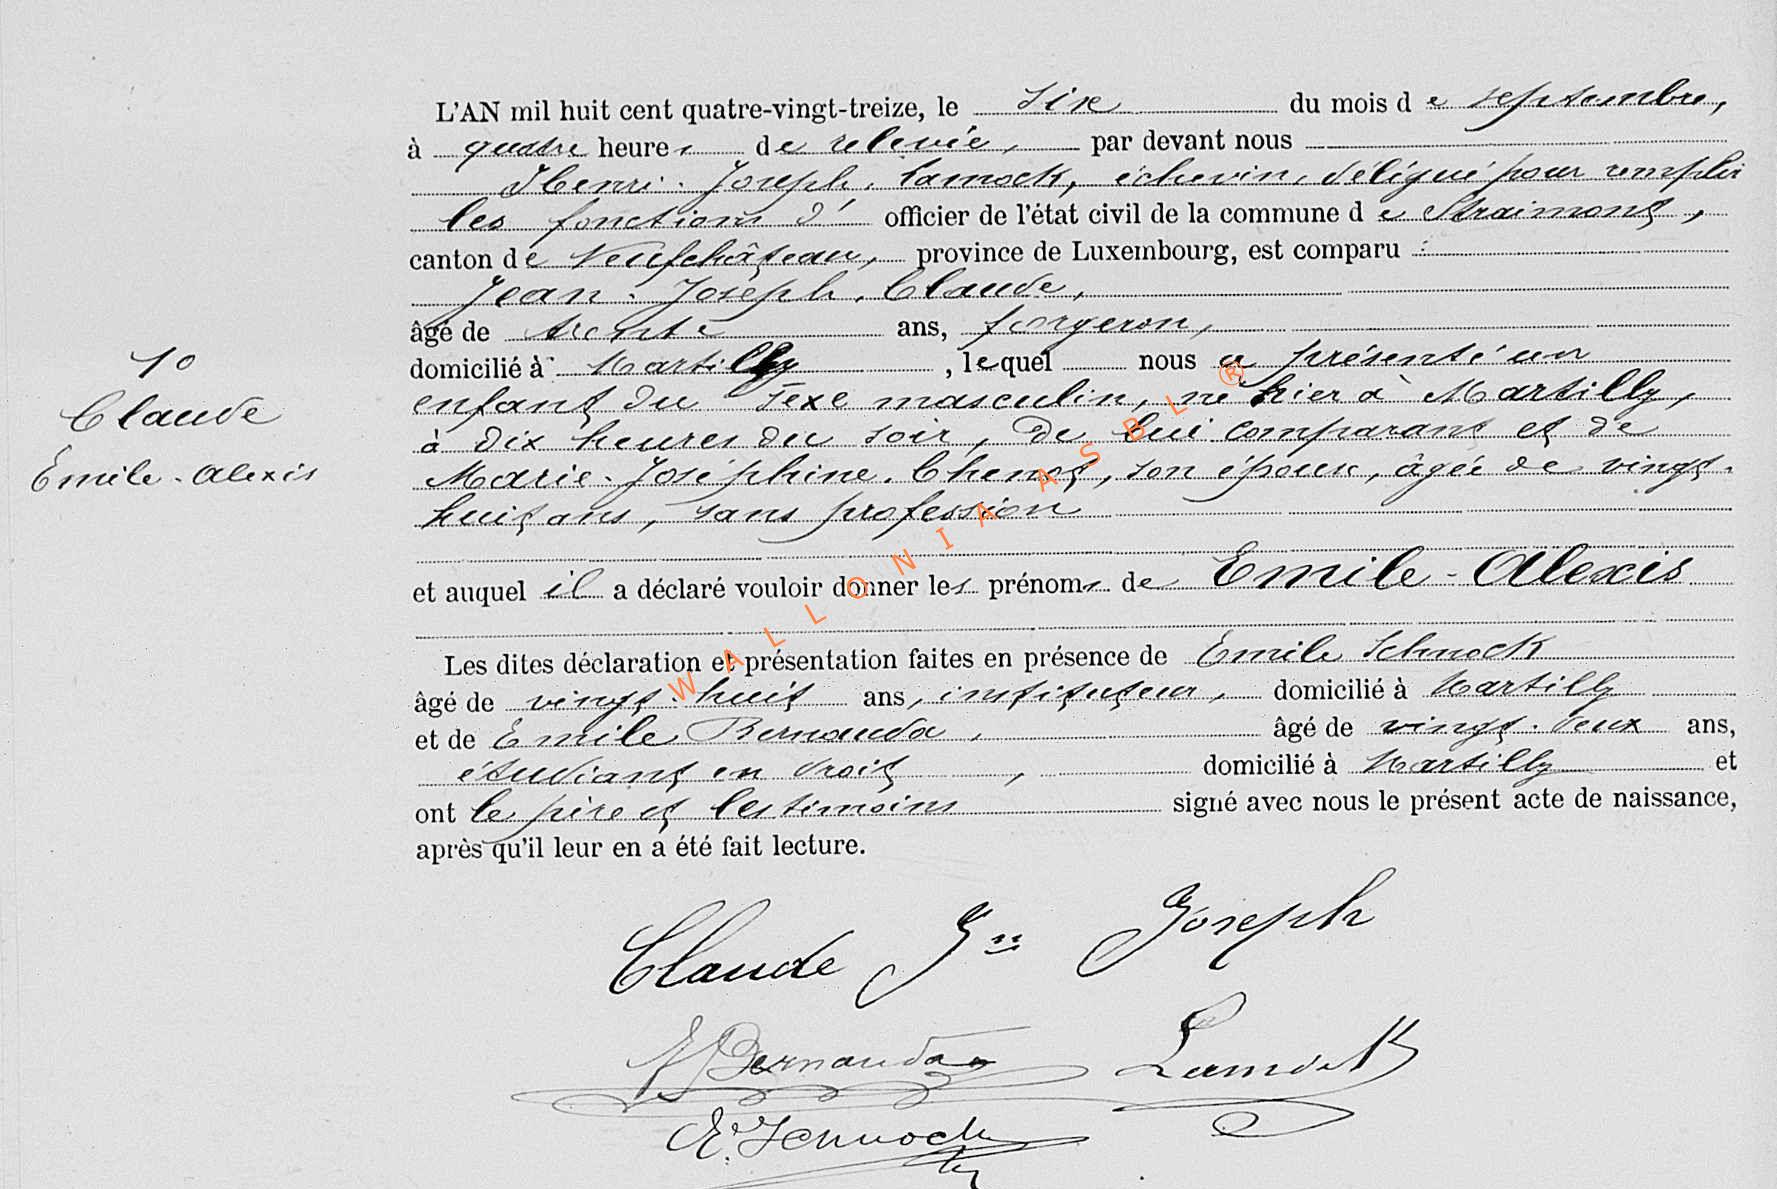 L'AN mil huit cent quatre-vingt-treize, le six du mois de septembre,
à quatre heures de relevée, par devant nous
Henri-Joseph Lamock, échevin, délégué pour remplir
les fonctions d' officier de l'état civil de la commune de Straimont,
canton de Neufchâteau, province de Luxembourg, est comparu :
Jean-Joseph Claude,
âgé de trente ans, forgeron,
domicilié à Martilly, lequel nous a présenté un
1º
enfant du sexe masculin, né hier à Martilly,
Claude
à dix heures du soir, de lui comparant et de
Emile-Alexis
Marie-Joséphine Chenot, son épouse, âgée de vingt-
huit ans, sans profession
et auquel il a déclaré vouloir donner les prénoms de Emile-Alexis
Les dites déclaration et présentation faites en présence de Emile Schnock
âgé de vingt-huit ans, instituteur, domicilié à Martilly
et de Emile Bernauda, âgé de vingt-deux ans,
étudiant en droit, domicilié à Martilly et
ont le père et les témoins signé avec nous le présent acte de naissance,
après qu'il leur en a été fait lecture.
Claude Jn Joseph
Bernauda Lamock
E. Schnock
WALLONIA ASBL ®